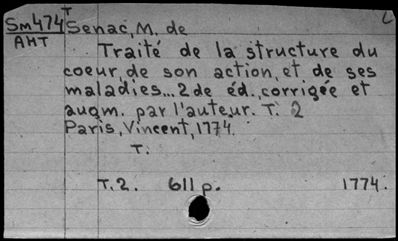 L
Sm474 T Senac, M. de
AHT Traité de la structure du
coeur, de son action, et de ses
maladies... 2 de éd., corrigée et
augm. par l'auteur. T. 2
Paris, Vincent, 1774.
T.
T. 2. 611 p. 1774.